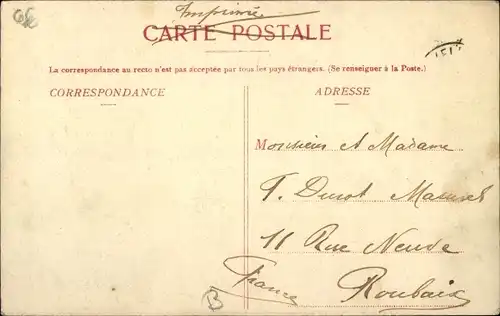 Imprimé
CARTE POSTALE
La correspondance au recto n'est pas acceptée par tous les pays étrangers. (Se renseigner à la Poste.)
CORRESPONDANCE
ADRESSE
Monsieur et Madame
F. Durot
11 Rue Neuve
Roubaix
France
B